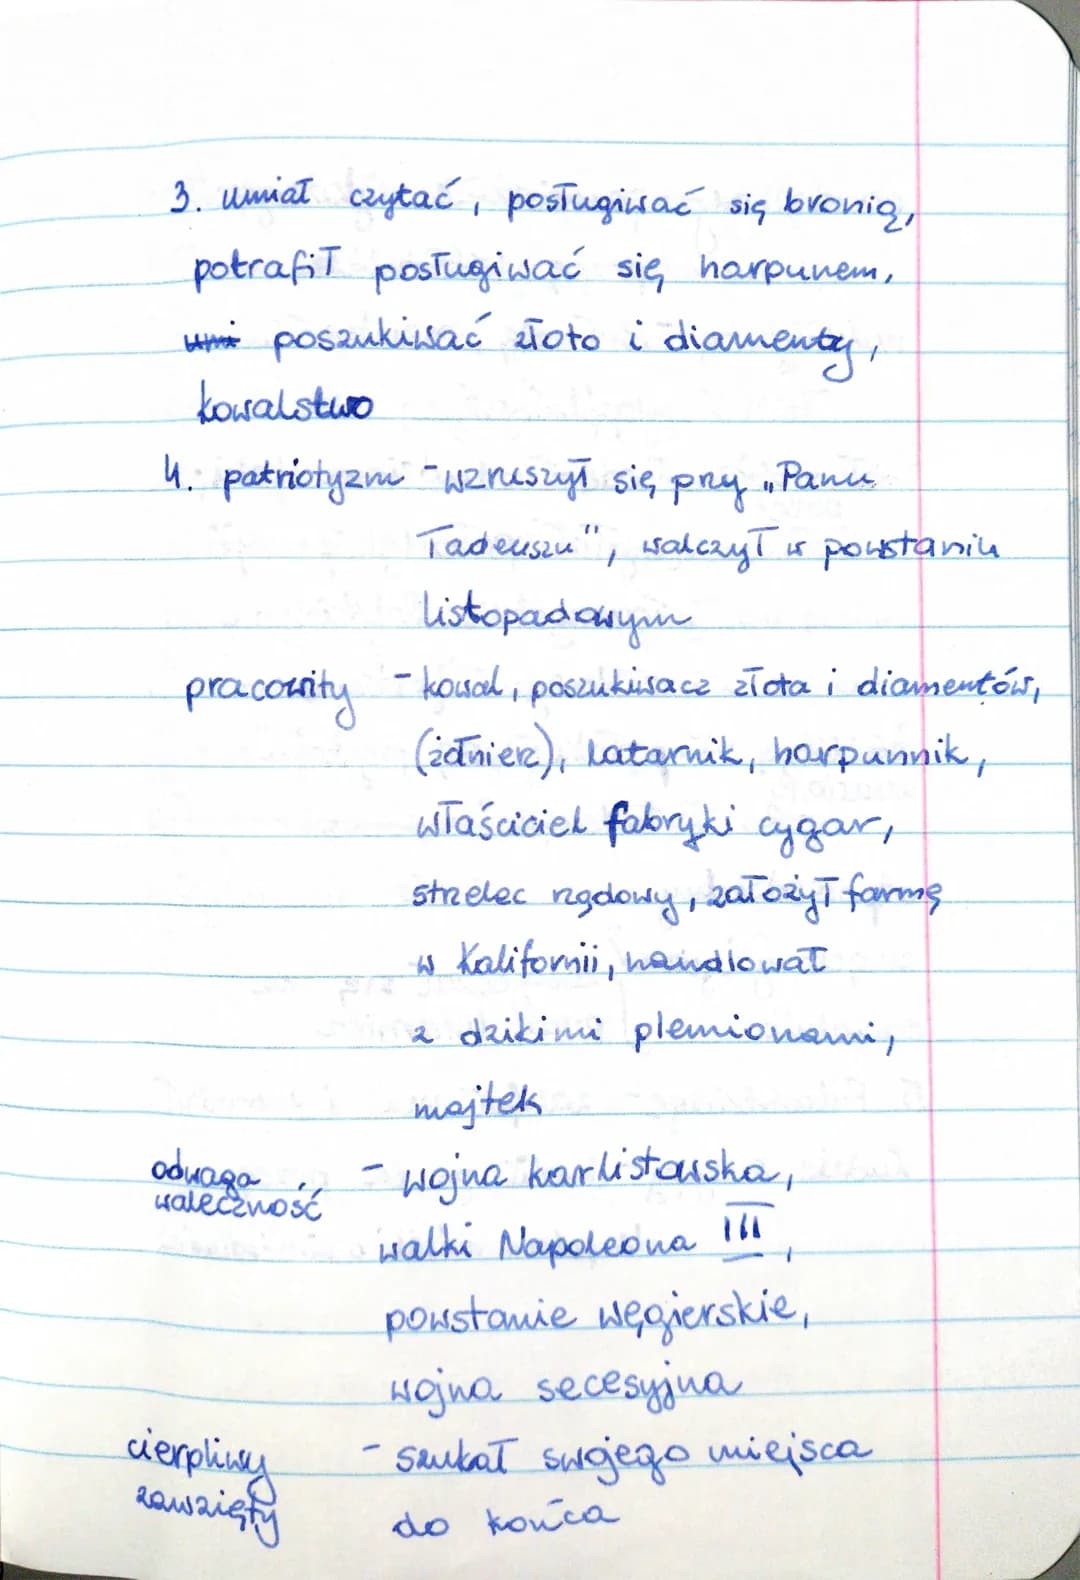 3. umiał czytać, posługiwać się bronią,
potrafił posługiwać się harpunem,
umi poszukiwać złoto i diamenty,
kowalstwo
4. patriotyzm - wzruszył się przy „Panu
Tadeuszu", walczył w powstaniu
listopadowym
pracowity - kowal, poszukiwacz złota i diamentów,
(żołnierz), latarnik, harpunnik,
właściciel fabryki cygar,
strzelec rządowy, założył farmę
w Kalifornii, handlował
z dzikimi plemionami,
majtek
odwaga
waleczność
- wojna karlistowska,
walki Napoleona III,
powstanie węgierskie,
wojna secesyjna
cierpliwy
zawzięty
- szukał swojego miejsca
do końca